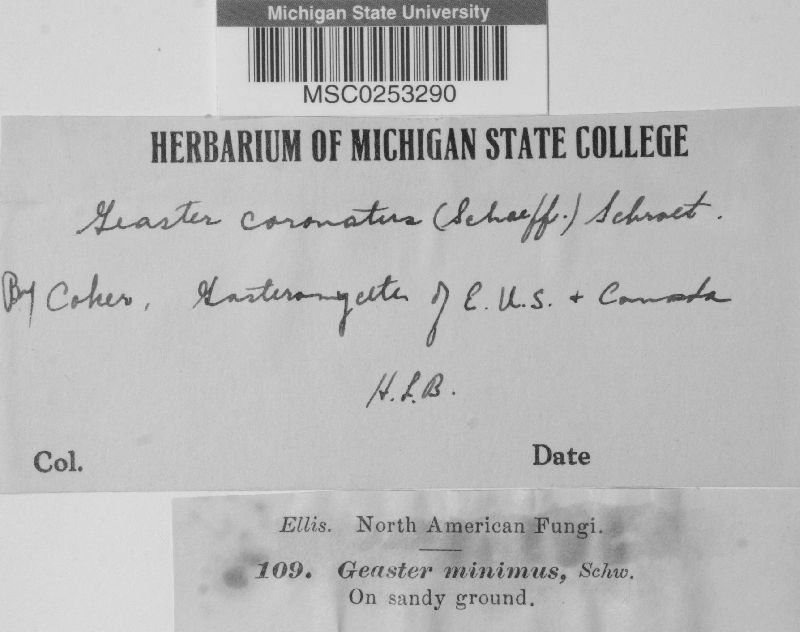 Michigan State University
MSC0253290
HERBARIUM OF MICHIGAN STATE COLLEGE
Geaster coronatus (Schaeff.) Schroet.
By Coker, Gasteromycetes of E. U.S. + Canada
H.L.B.
Col. Date
Ellis. North American Fungi.
109. Geaster minimus, Schw.
On sandy ground.